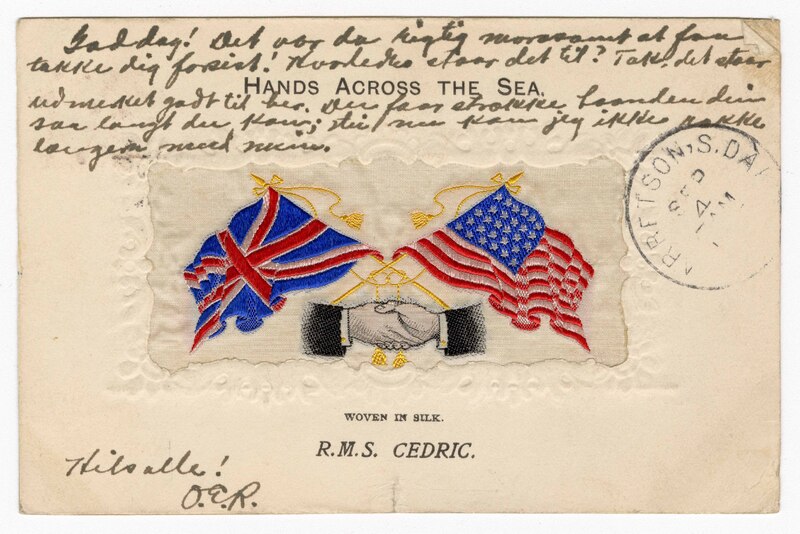 God dag! Det var da rigtig morosamt at faa
takke dig forsist! Hvorledes staar det til? Tak, det staar
HANDS ACROSS THE SEA.
udmerket godt til her. Du faar strække haanden din
saa langt du kan; thi nu kan jeg ikke række
længem med min.
GARRETSON, S. DAK
SEP
4
AM
WOVEN IN SILK.
R.M.S. CEDRIC.
Hils alle!
O.E.R.